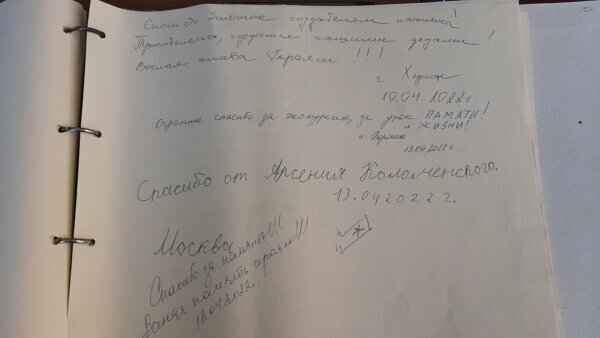 Спасибо большое создателям комплекса!
Трогательно, гордимся нашими дедами!
Вечная слава Героям!!!
г. Херсон
10.04.2022г.
Огромное спасибо за экскурсию, за урок ПАМЯТИ!
и ЖИЗНИ!
г. Воронеж
13.04.2022г
Спасибо от Арсения Коломенского.
13.042022г.
Москва
Спасибо за память!!!
Вечная память героям!!!
18.04.2022г.